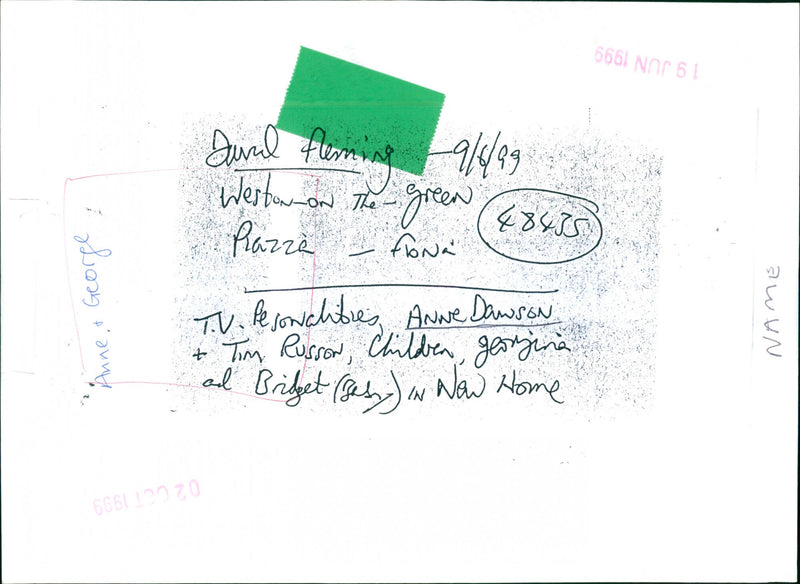 19 JUN 1999
David Fleming — 9/6/99
Weston-on The-Green
48435
Piazza — Fiona
T.V. Personalities, Anne Dawson
+ Tim Russon, Children, georgina
and Bridget (Baby) in New Home
Anne + George
NAME
02 OCT 1999